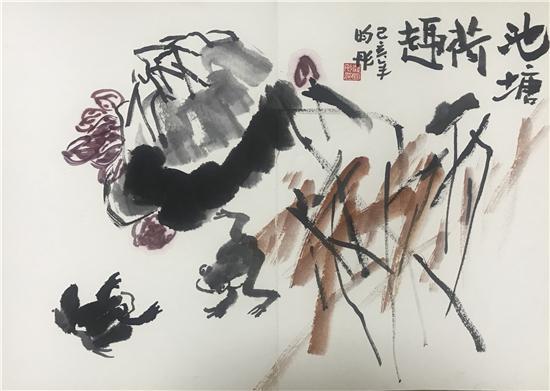 池塘
荷
趣
己亥年
昀彤